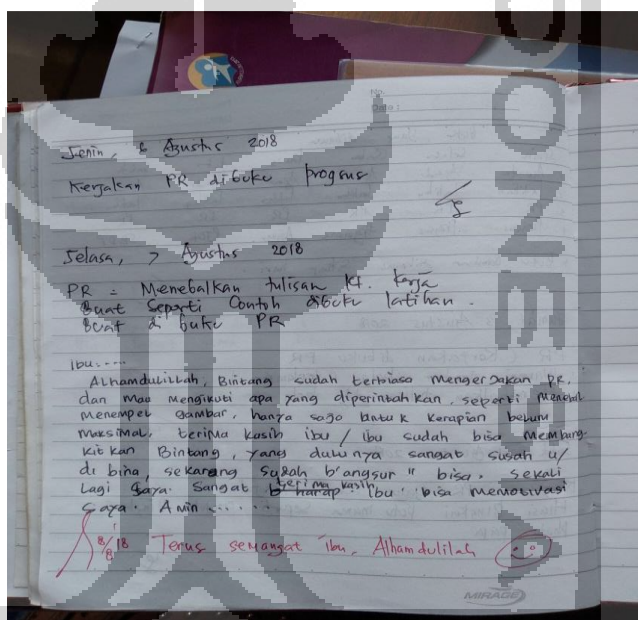 No.
Date:
Senin, 6 Agustus 2018
Kerjakan PR dibuku progsus
Selasa, 7 Agustus 2018
PR = Menebalkan tulisan kt. kerja
Buat Seperti Contoh dibuku latihan.
Buat di buku PR
Ibu.....
Alhamdulillah, Bintang sudah terbiasa mengerjakan PR.
dan mau mengikuti apa yang diperintahkan, seperti menebal
menempel gambar, hanya sajo untuk kerapian belum
maksimal, terima kasih ibu / ibu sudah bisa membang
kitkan Bintang, yang dulunya sangat susah u/
di bina, sekarang sudah b'angsur" bisa. sekali
Lagi saya sangat terima kasih
b'harap ibu bisa memotivasi
saya. Amin ......
8/8 18 Terus semangat ibu, Alhamdulilah
MIRAGE
ONES